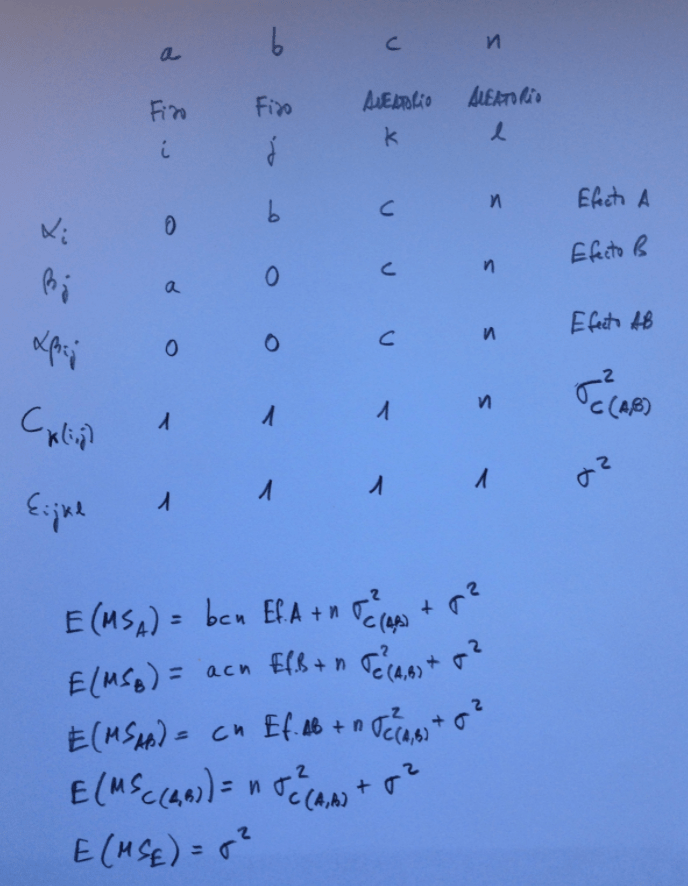 a b c n
Fijo Fijo ALEATORIO ALEATORIO
i j k l
αi 0 b c n Efecto A
βj a 0 c n Efecto B
αβij 0 0 c n Efecto AB
Ck(i,j) 1 1 1 n σ²C(A,B)
εijkl 1 1 1 1 σ²
E(MSA) = bcn Ef.A + n σ²C(A,B) + σ²
E(MSB) = acn Ef.B + n σ²C(A,B) + σ²
E(MSAB) = cn Ef.AB + n σ²C(A,B) + σ²
E(MSC(A,B)) = n σ²C(A,B) + σ²
E(MSE) = σ²